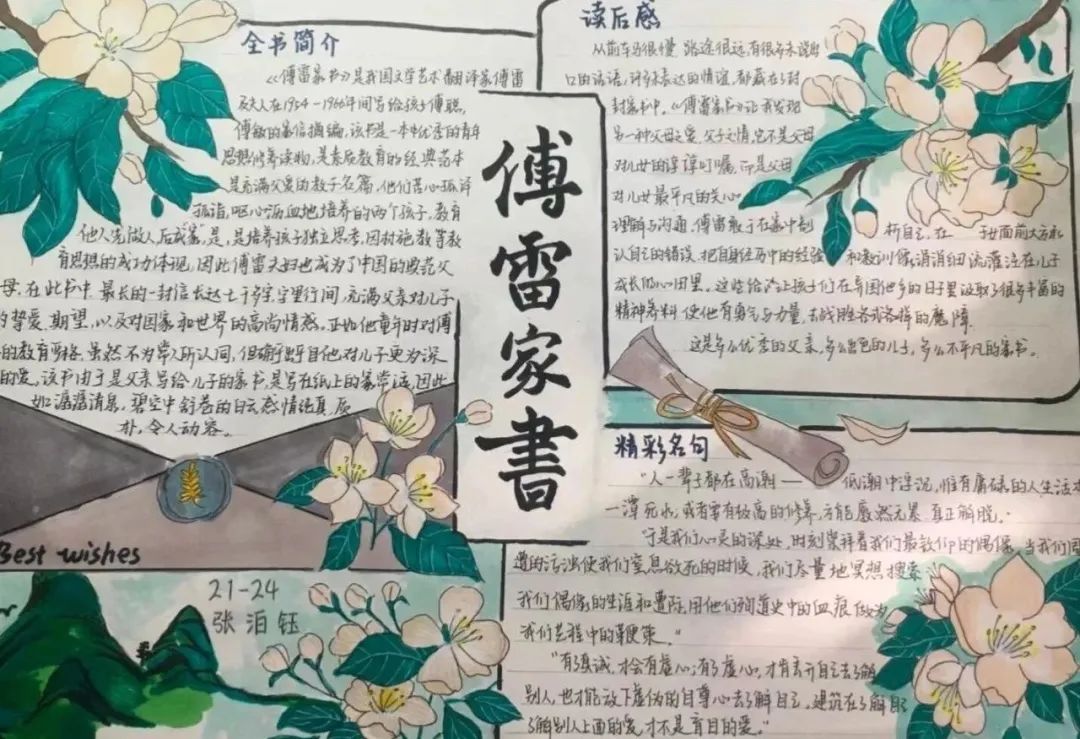 全书简介
《傅雷家书》是我国文学艺术翻译家傅雷
及夫人在1954-1966年间写给孩子傅聪,
傅敏的家信摘编,该书是一本优秀的青年
思想修养读物,是素质教育的经典范本
是充满父爱的教子名篇,他们苦心孤诣
孤诣,呕心沥血地培养的两个孩子,教育
他人先做人后成"家",是培养孩子独立思考,因材施教等教
育思想的成功体现,因此傅雷夫妇也成为了中国的典范父
母,在此书中,最长的一封信长达七千多字,字里行间,充满父亲对儿子
的挚爱,期望,以及对国家和世界的高尚情感。正如他童年时对傅
的教育严格,虽然不为常人所认同,但确乎出自他对儿子更为深
的爱,该书由于是父亲写给儿子的家书,是写在纸上的家常话,因此
如潺潺清泉,碧空中舒卷的白云感情纯真,质
朴,令人动容。
傅雷家書
读后感
从前车马很慢,路途很远,有很多未说出
口的话语,许多未表达的情谊,都藏在了封
封家书中。《傅雷家书》让我发现
另一种父母之爱,父子之情,它不是父母
对儿女的谆谆叮嘱,而是父母
对儿女最平凡的关心
理解与沟通,傅雷敢于在家中剖析自己,在 子女面前大方承
认自己的错误,把自身经历中的经验和教训像涓涓细流灌注在儿子
成长的心田里。这些给予孩子们在异国他乡的日子里汲取了很多丰富的
精神养料,使他有勇气与力量,去战胜各式各样的魔障
这是多么优秀的父亲,多么出色的儿子,多么不平凡的家书。
精彩名句
"人一辈子都在高潮——低潮中浮沉,惟有庸碌的人生活才
一潭死水,或者要有极高的修养,方能廓然无累,真正解脱。"
于是我们心灵的深处,时刻崇拜着我们最敬仰的偶像,当我们周
遭的污浊使我们窒息欲死的时候,我们尽量地冥想搜索
我们偶像的生涯和遭际,用他们殉道史中的血痕做为
我们艺程中的鞭策。"
"有了真诚,才会有虚心;有了虚心,才肯丢开自己去了解
别人,也才能放下虚伪的自尊心去了解自己,建筑在了解自
了解别人上面的爱,才不是盲目的爱。"
Best wishes
21-24
张泊钰